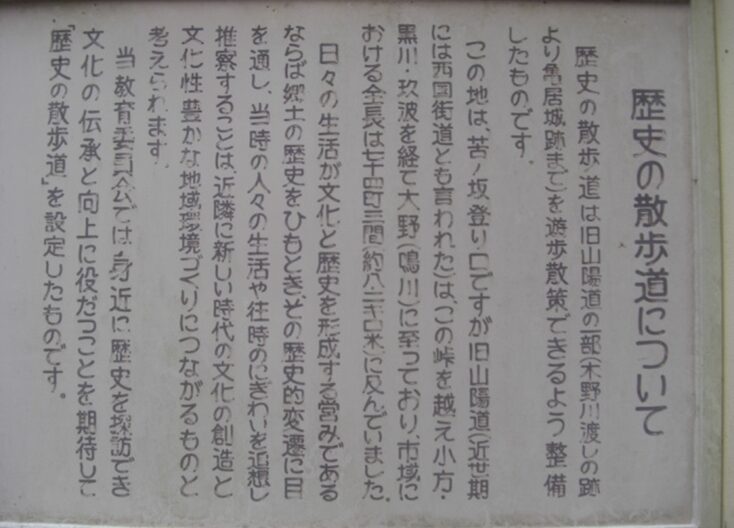 歴史の散歩道について
歴史の散歩道は旧山陽道の一部(木野川渡しの跡
より亀居城跡まで)を遊歩散策できるよう整備
したものです。
この地は、苦ノ坂登り口ですが旧山陽道(近世期
には西国街道とも言われた)は、この峠を越え小方・
黒川・玖波を経て大野(鳴川)に至っており、市域に
おける全長は七十四町三間(約八二キロ米)に及んでいました。
日々の生活が文化と歴史を形成する営みである
ならば郷土の歴史をひもとき、その歴史的変遷に目
を通し、当時の人々の生活や往時のにぎわいを追想し
推察することは、近隣に新しい時代の文化の創造と
文化性豊かな地域環境づくりにつながるものと
考えられます。
当教育委員会では身近に歴史を探訪でき
文化の伝承と向上に役だつことを期待して
「歴史の散歩道」を設定したものです。